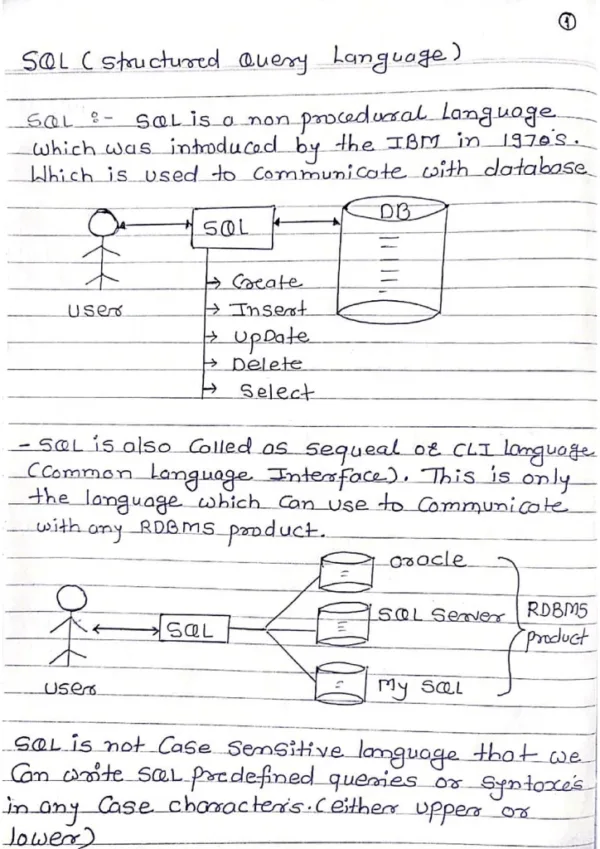 1
SQL (Structured Query Language)
SQL :- SQL is a non procedural Language
which was introduced by the IBM in 1970's.
Which is used to Communicate with database
DB
SQL
User
→ Create
→ Insert
→ UpDate
→ Delete
→ Select
- SQL is also Called as sequeal or CLI language
(Common Language Interface). This is only
the language which Can use to Communicate
with any RDBMS product.
Oracle
SQL Server
My SQL
RDBMS
product
SQL
User
SQL is not Case Sensitive language that we
Can write SQL predefined queries or Syntaxe's
in any Case character's. (either upper or
lower)